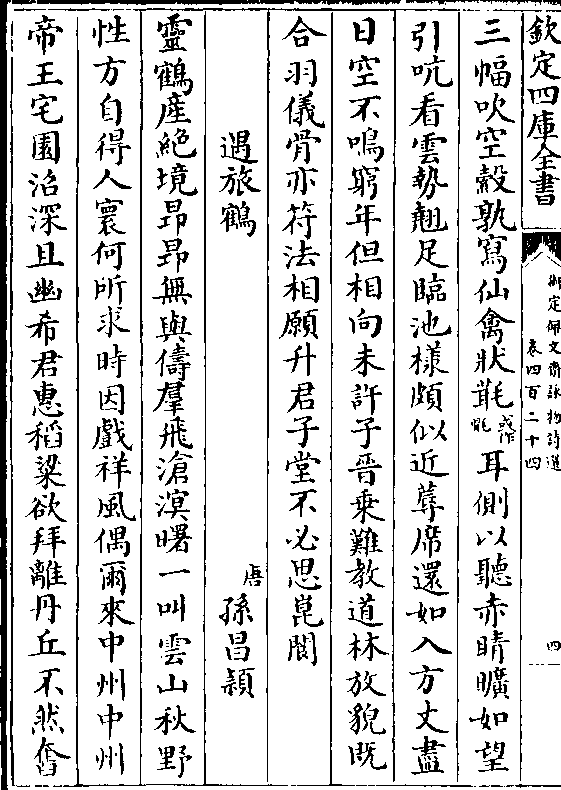 欽定四庫全書
御定佩文齋詠物詩選
卷四百二十四
四
三幅吹空縠孰寫仙禽狀 或作 耳側以聽赤睛曠如望
引吭看雲勢翹足臨池様頗似近蓐席還如入方丈盡
日空不鳴窮年但相向未許子晉乗難教道林放貌既
合羽儀骨亦符法相願升君子堂不必思崑閬
遇旅鶴
唐 孫昌穎
靈鶴產絕境昂昂無與儔羣飛滄溟曙一叫雲山秋野
性方自得人寰何所求時因戲祥風偶爾來中州中州
帝王宅園沼深且幽希君惠稻粱欲拜離丹丘不然奮